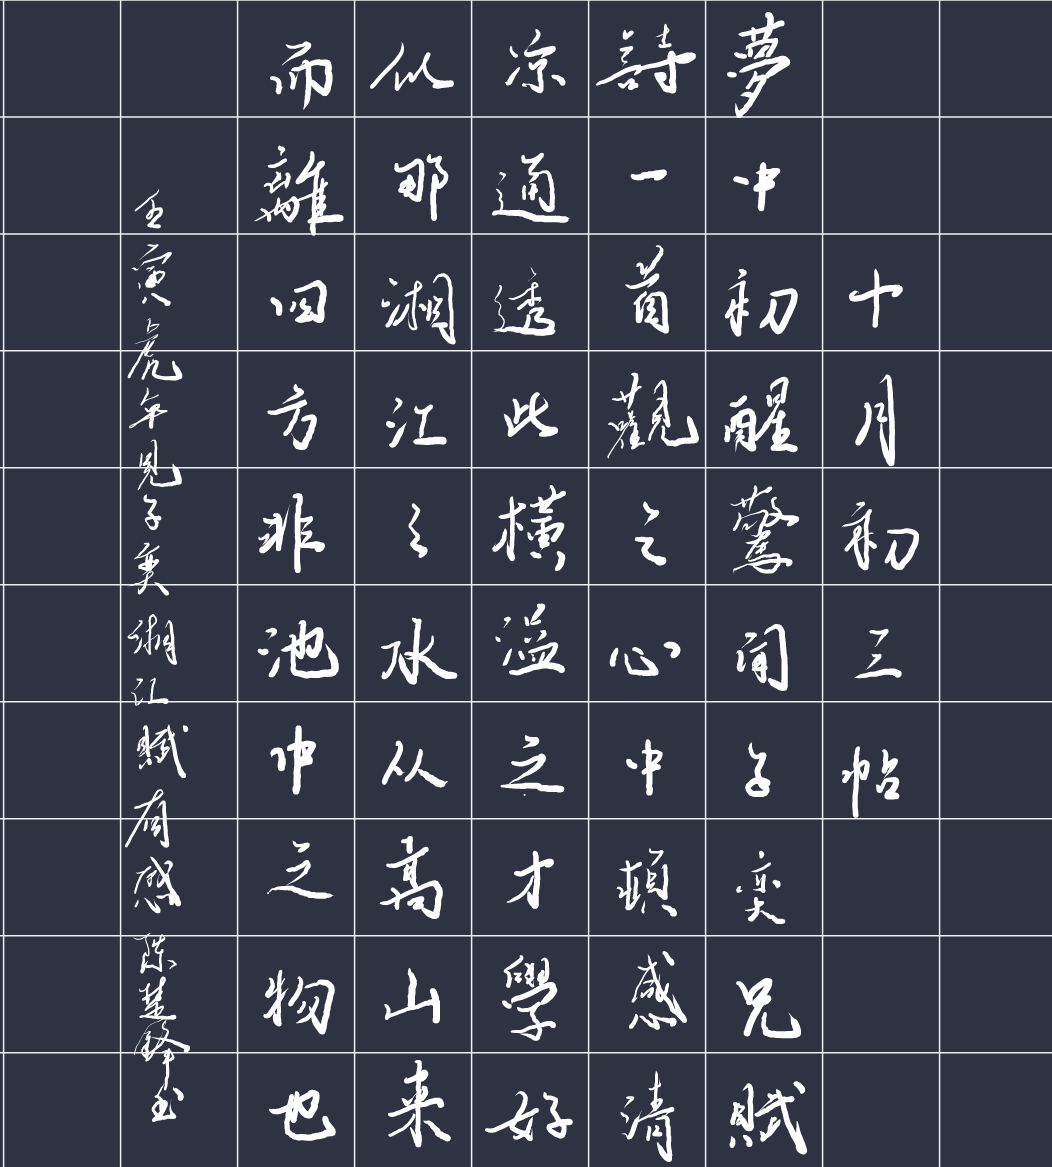 十月初三帖
夢中初醒驚聞子奕兄賦
詩一首觀之心中頓感清
凉通透此橫溢之才學好
似那湘江之水从高山来
而離四方非池中之物也
壬寅虎年見子奕湘江賦有感 陈楚鋒书